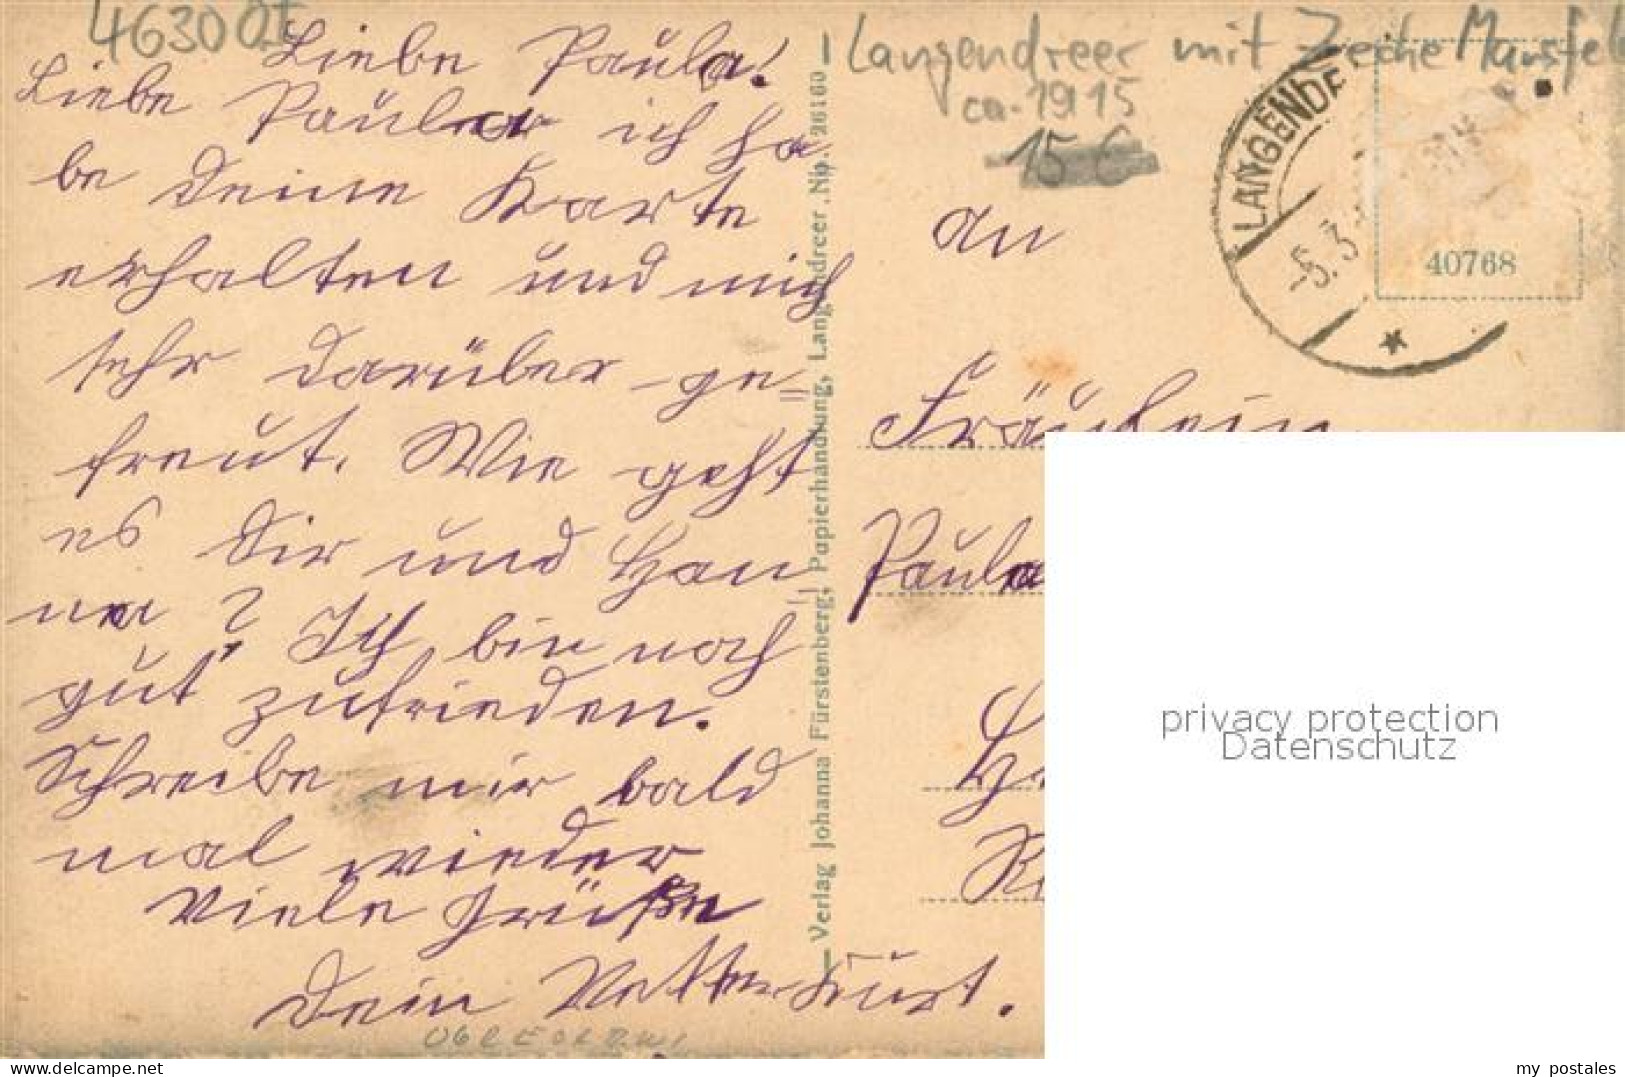 46300I
Liebe Paula!
Liebe Paula ich ha-
be Deine Karte
erhalten und mich
sehr darüber ge-
freut. Wie geht
es Dir und Han
na? Ich bin noch
gut zufrieden.
Schreibe mir bald
mal wieder
Viele Grüße
Dein Vetter Kurt.
Verlag Johanna Fürstenberg, Papierhandlung, Langendreer. No. 26160
Langendreer mit Zeche Mansfel
ca. 1915
15 €
LANGENDR
-5.3
40768
An
Fräulein
Paula
privacy protection
Datenschutz
my postales